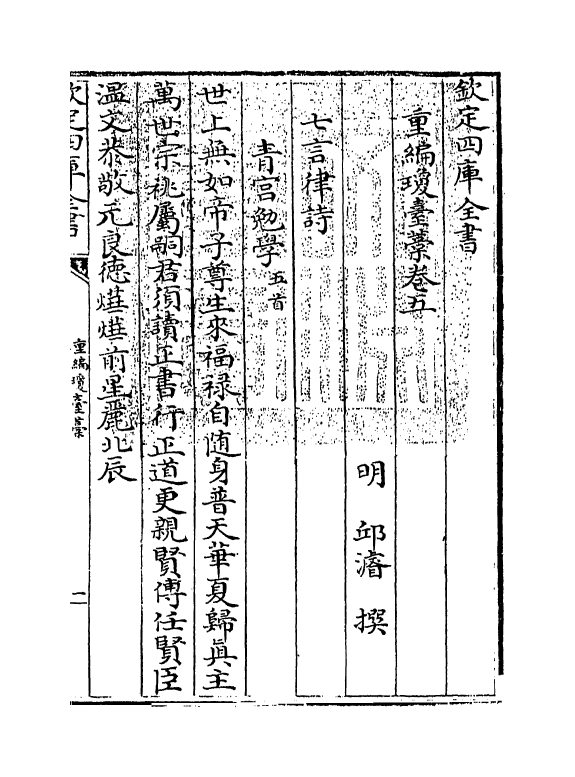 欽定四庫全書
重編瓊臺藁卷五
明　邱濬　撰
七言律詩
青宫勉學五首
世上無如帝子尊生來福禄自随身普天華夏歸眞主
萬世宗祧屬嗣君須讀正書行正道更親賢傅任賢臣
温文恭敬元良徳爗爗前星麗北辰
欽定四庫全書
重編瓊臺藁